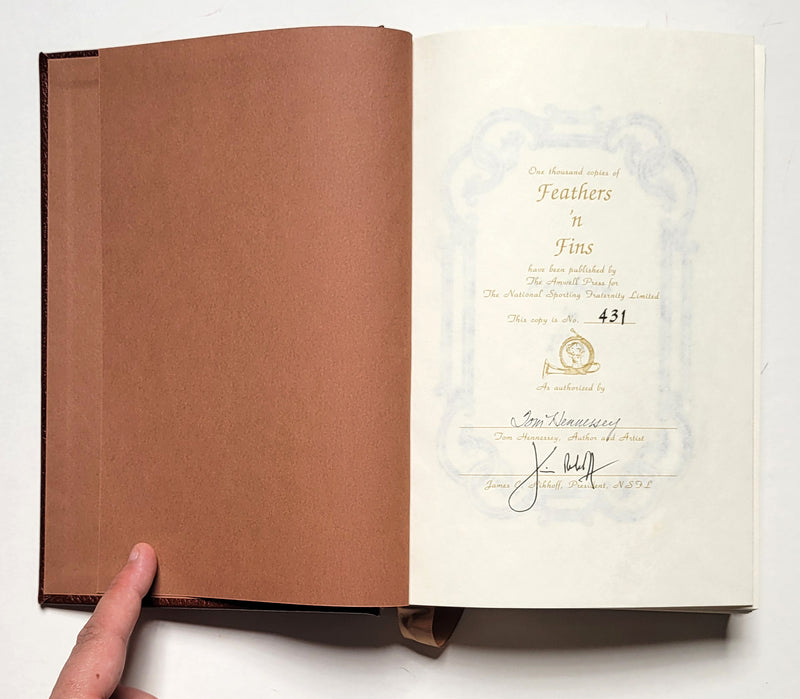 One thousand copies of
Feathers
'n
Fins
have been published by
The Amwell Press for
The National Sporting Fraternity Limited
This copy is No. 431
As authorized by
Tom Hennessey
Tom Hennessey, Author and Artist
James President, NSFL